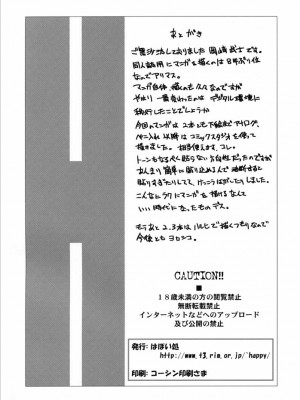 あとがき
ご無沙汰しておりました 岡崎武士です。
同人誌用にマンガを描くのは8年ぶり位
なんでアリマス。
マンガ自体、描くのも久々なんですが
やはり一番変わったのは デジタル環境に
移行したことでしょうか
今回のマンガは 2本とも下絵までアナログ。
ペン入れ以降はコミックスタジオを使って
描きました。相当使えます、コレ。
トーンもなるべく貼らない方向性だったのですが
あんまり簡単に貼り込めるんで 油断すると
貼りすぎたりしてと、けっこうハマったりしました。
こんなにラクにマンガを描けるなんて
いい時代になったものデス。
もうあと2,3本はハルヒで描くつもりなんで
今後とも ヨロシコ。
CAUTION!!
■
18歳未満の方の閲覧禁止
無断転載禁止
インターネットなどへのアップロード
及び公開の禁止
発行: はぽい処
http://www.t3.rim.or.jp/~happy/
印刷: コーシン印刷さま